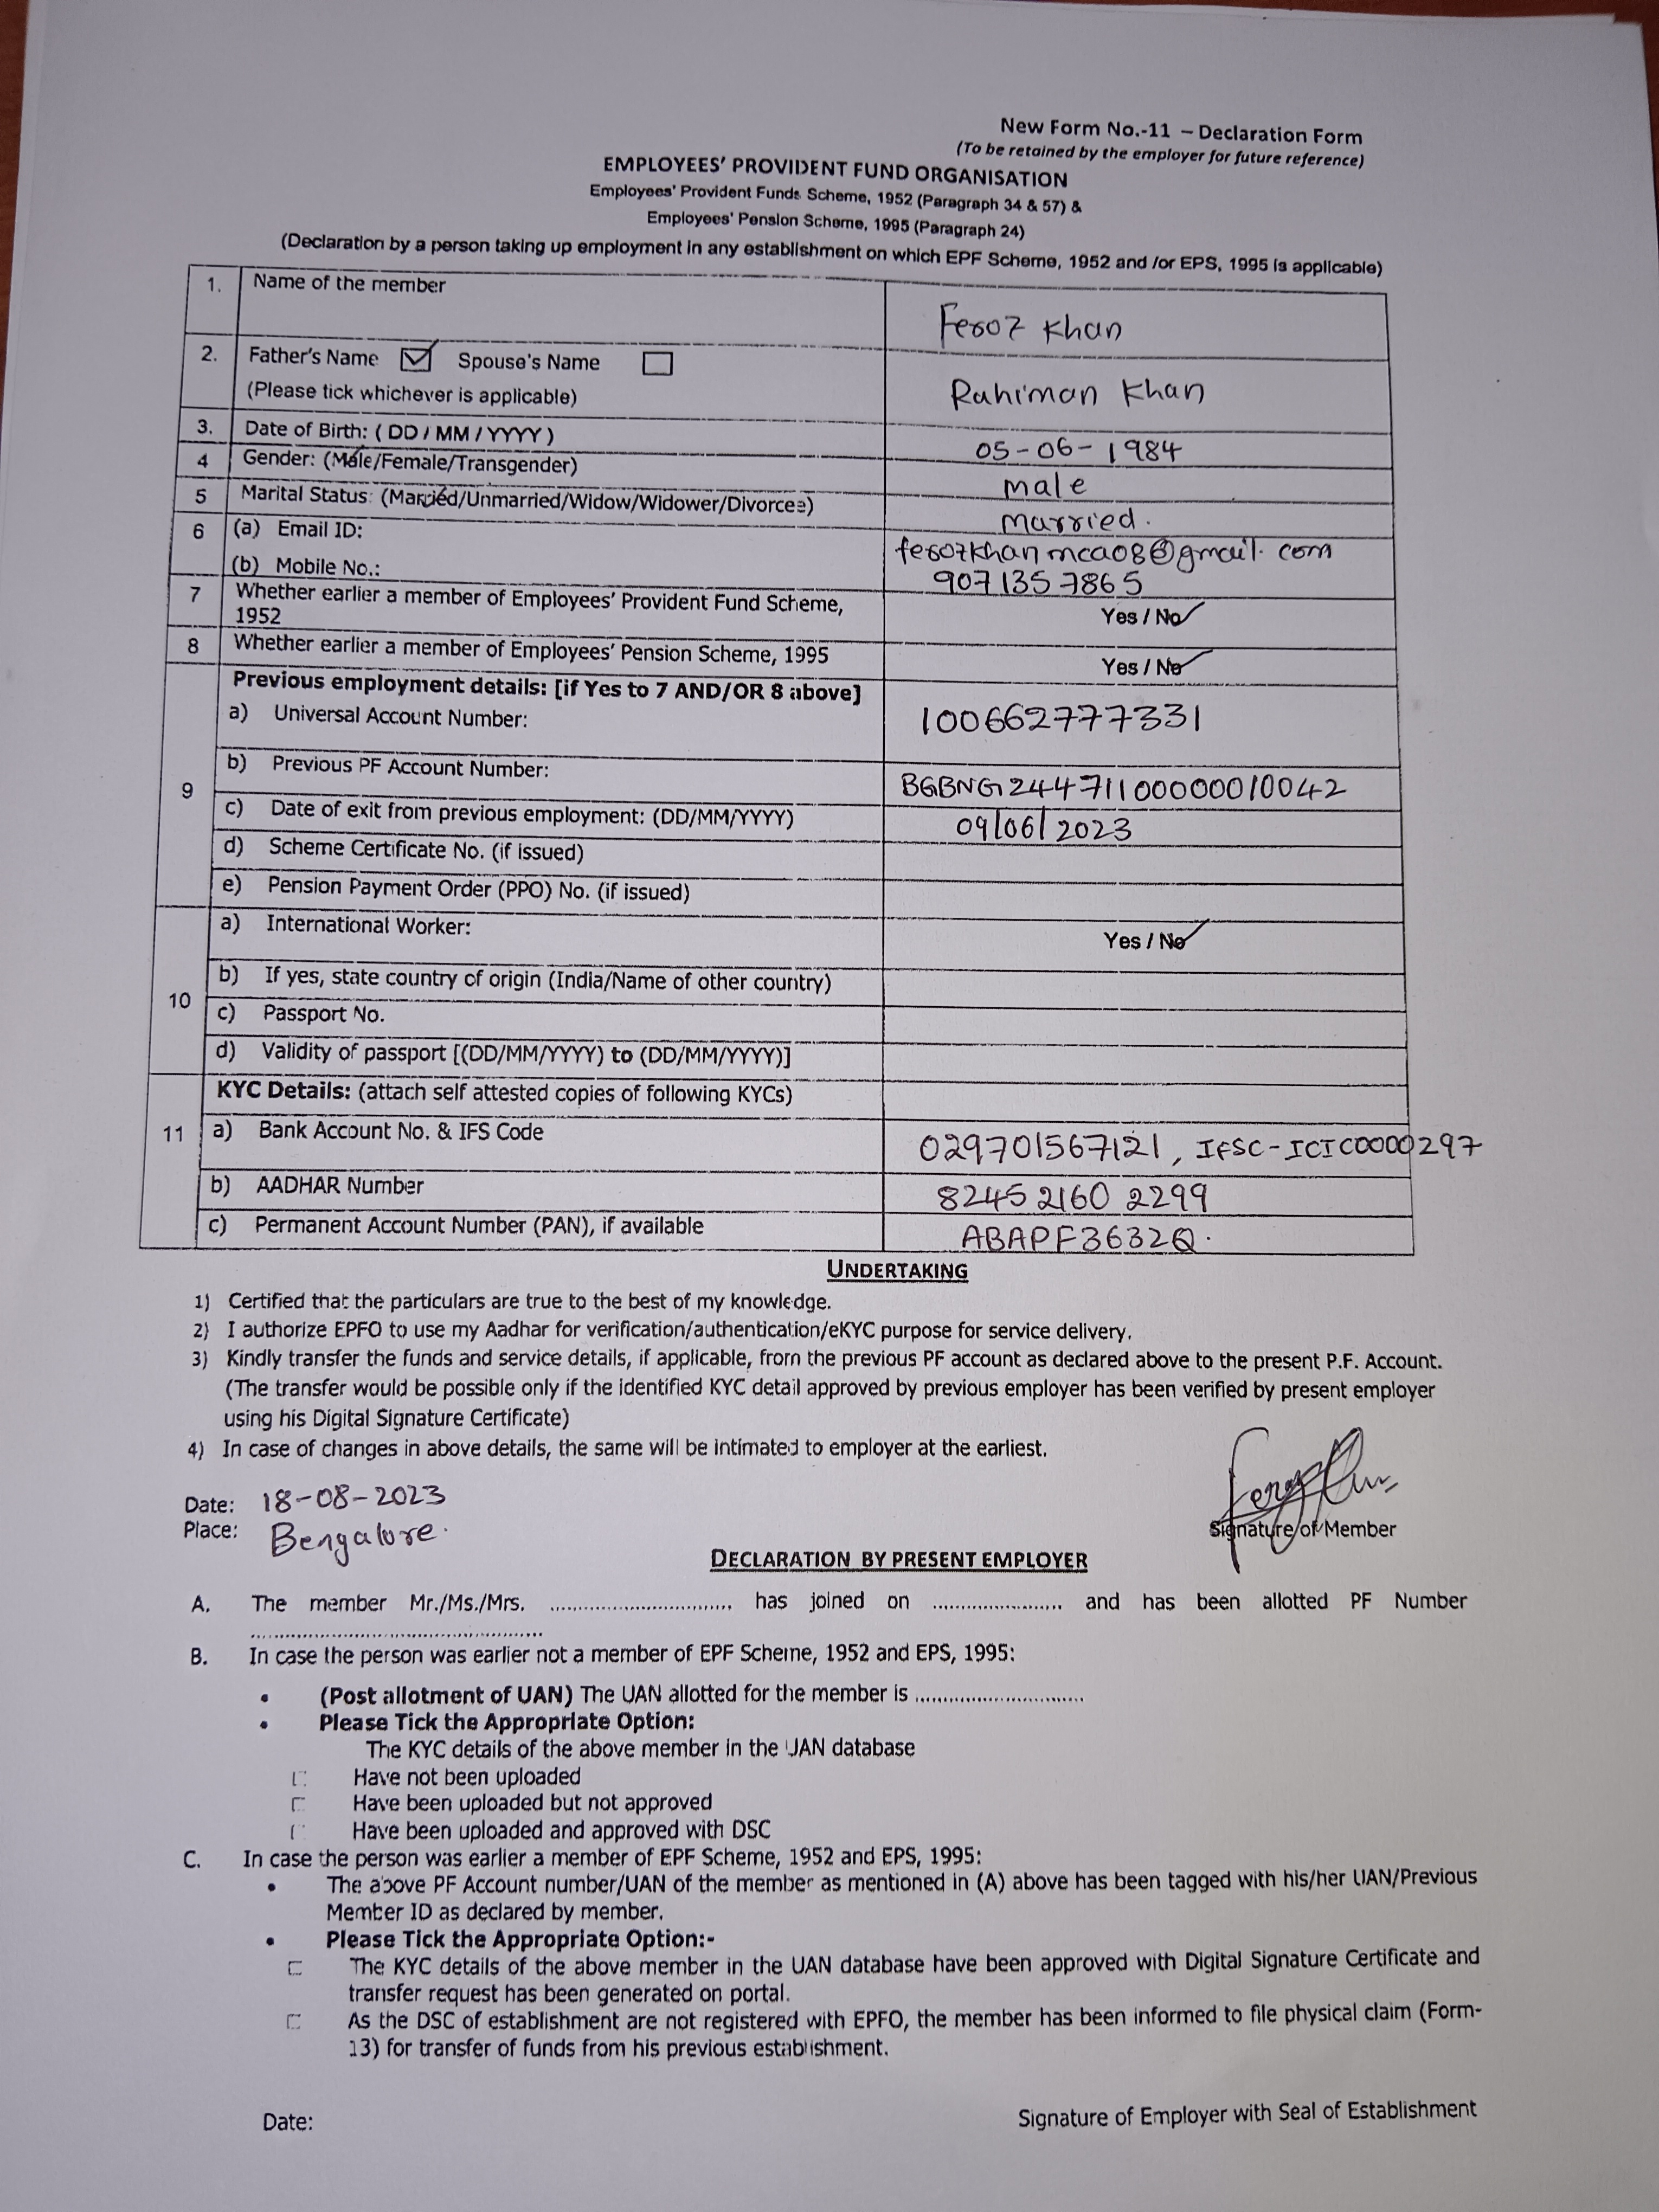 New Form No.-11 – Declaration Form
(To be retained by the employer for future reference)
EMPLOYEES' PROVIDENT FUND ORGANISATION
Employees' Provident Funds Scheme, 1952 (Paragraph 34 & 57) &
Employees' Pension Scheme, 1995 (Paragraph 24)
(Declaration by a person taking up employment in any establishment on which EPF Scheme, 1952 and /or EPS, 1995 is applicable)
1. Name of the member Feroz Khan
2. Father's Name Spouse's Name
(Please tick whichever is applicable) Rahiman Khan
3. Date of Birth: ( DD / MM / YYYY ) 05-06-1984
4 Gender: (Male/Female/Transgender) male
5 Marital Status: (Married/Unmarried/Widow/Widower/Divorcee) married.
6 (a) Email ID: ferozkhanmca08@gmail.com
(b) Mobile No.: 9071357865
7 Whether earlier a member of Employees' Provident Fund Scheme,
1952 Yes / No
8 Whether earlier a member of Employees' Pension Scheme, 1995 Yes / No
Previous employment details: [if Yes to 7 AND/OR 8 above]
a) Universal Account Number: 100662777331
9
b) Previous PF Account Number: BGBNG24471100000010042
c) Date of exit from previous employment: (DD/MM/YYYY) 09/06/2023
d) Scheme Certificate No. (if issued)
e) Pension Payment Order (PPO) No. (if issued)
10
a) International Worker: Yes / No
b) If yes, state country of origin (India/Name of other country)
c) Passport No.
d) Validity of passport [(DD/MM/YYYY) to (DD/MM/YYYY)]
KYC Details: (attach self attested copies of following KYCs)
11 a) Bank Account No. & IFS Code 029701567121, IFSC-ICIC0000297
b) AADHAR Number 8245 2160 2299
c) Permanent Account Number (PAN), if available ABAPF3632Q.
UNDERTAKING
1) Certified that the particulars are true to the best of my knowledge.
2) I authorize EPFO to use my Aadhar for verification/authentication/eKYC purpose for service delivery.
3) Kindly transfer the funds and service details, if applicable, from the previous PF account as declared above to the present P.F. Account.
(The transfer would be possible only if the identified KYC detail approved by previous employer has been verified by present employer
using his Digital Signature Certificate)
4) In case of changes in above details, the same will be intimated to employer at the earliest.
Date: 18-08-2023
Place: Bengalore.
Signature of Member
DECLARATION BY PRESENT EMPLOYER
A. The member Mr./Ms./Mrs. .............................. has joined on ...................... and has been allotted PF Number
.................................................
B. In case the person was earlier not a member of EPF Scheme, 1952 and EPS, 1995:
• (Post allotment of UAN) The UAN allotted for the member is ............................
• Please Tick the Appropriate Option:
The KYC details of the above member in the UAN database
Have not been uploaded
Have been uploaded but not approved
Have been uploaded and approved with DSC
C. In case the person was earlier a member of EPF Scheme, 1952 and EPS, 1995:
• The above PF Account number/UAN of the member as mentioned in (A) above has been tagged with his/her UAN/Previous
Member ID as declared by member.
• Please Tick the Appropriate Option:-
The KYC details of the above member in the UAN database have been approved with Digital Signature Certificate and
transfer request has been generated on portal.
As the DSC of establishment are not registered with EPFO, the member has been informed to file physical claim (Form-
13) for transfer of funds from his previous establishment.
Date:
Signature of Employer with Seal of Establishment